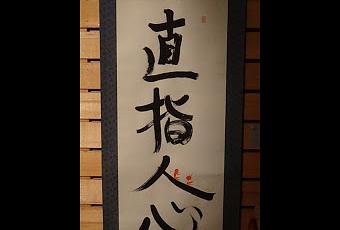 直指人心